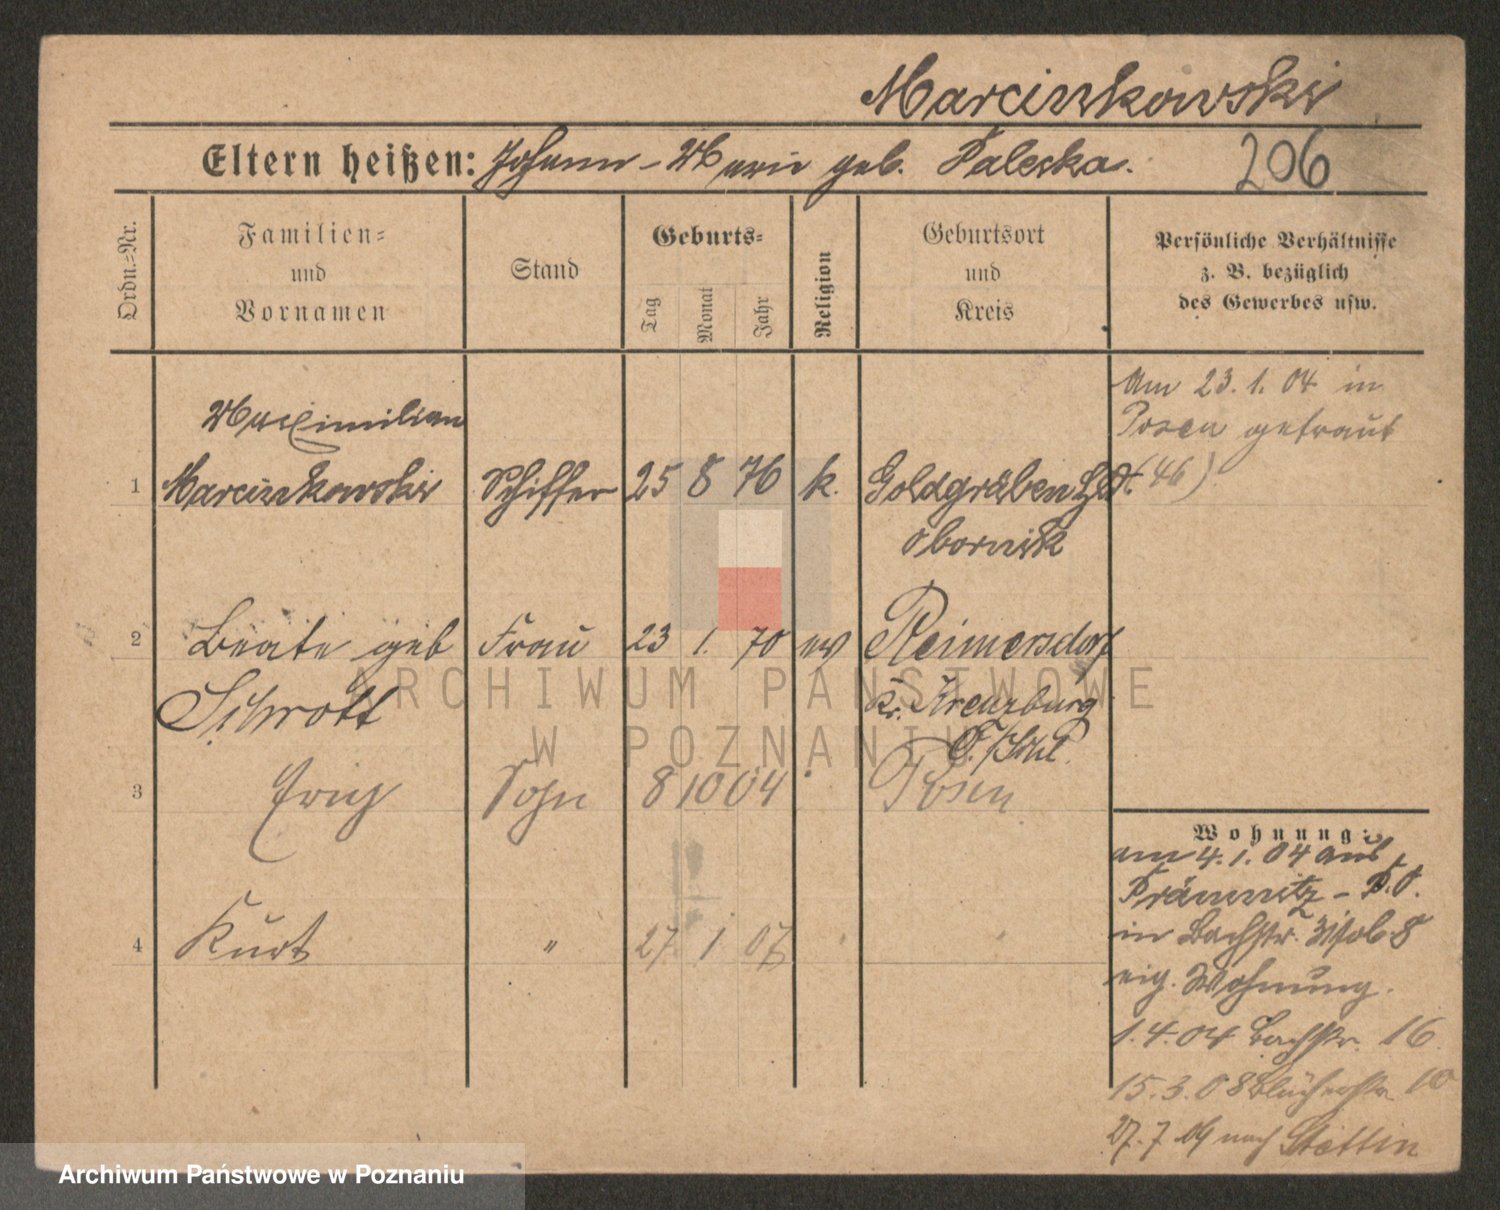 Marcinkowski
Eltern heißen: Johann - Marie geb. Paleska. 206
Ordn.-Nr.
Familien-
und
Vornamen
Stand
Geburts-
Tag
Monat
Jahr
Religion
Geburtsort
und
Kreis
Persönliche Verhältnisse
z. B. bezüglich
des Gewerbes usw.
Am 23. 1. 04 in
Posen getraut
Maximilian
1 Marcinkowski Schiffer 25 8 76 k. Goldgräben (46)
Obornik
2 Beate geb Frau 23 1. 70 ev Reimersdorf
Schrott Kr. Kreuzburg
O./Schl.
3 Erich Sohn 8 10 04 Posen
4 Kurt " 27 1 07 "
Wohnung:
am 4. 1. 04 aus
in Bachstr.
eig. Wohnung.
1. 4. 04 Bachstr. 16
15. 3. 08 Blücherstr. 10
27. 7. 09 nach Stettin
ARCHIWUM PAŃSTWOWE
W POZNANIU
Archiwum Państwowe w Poznaniu